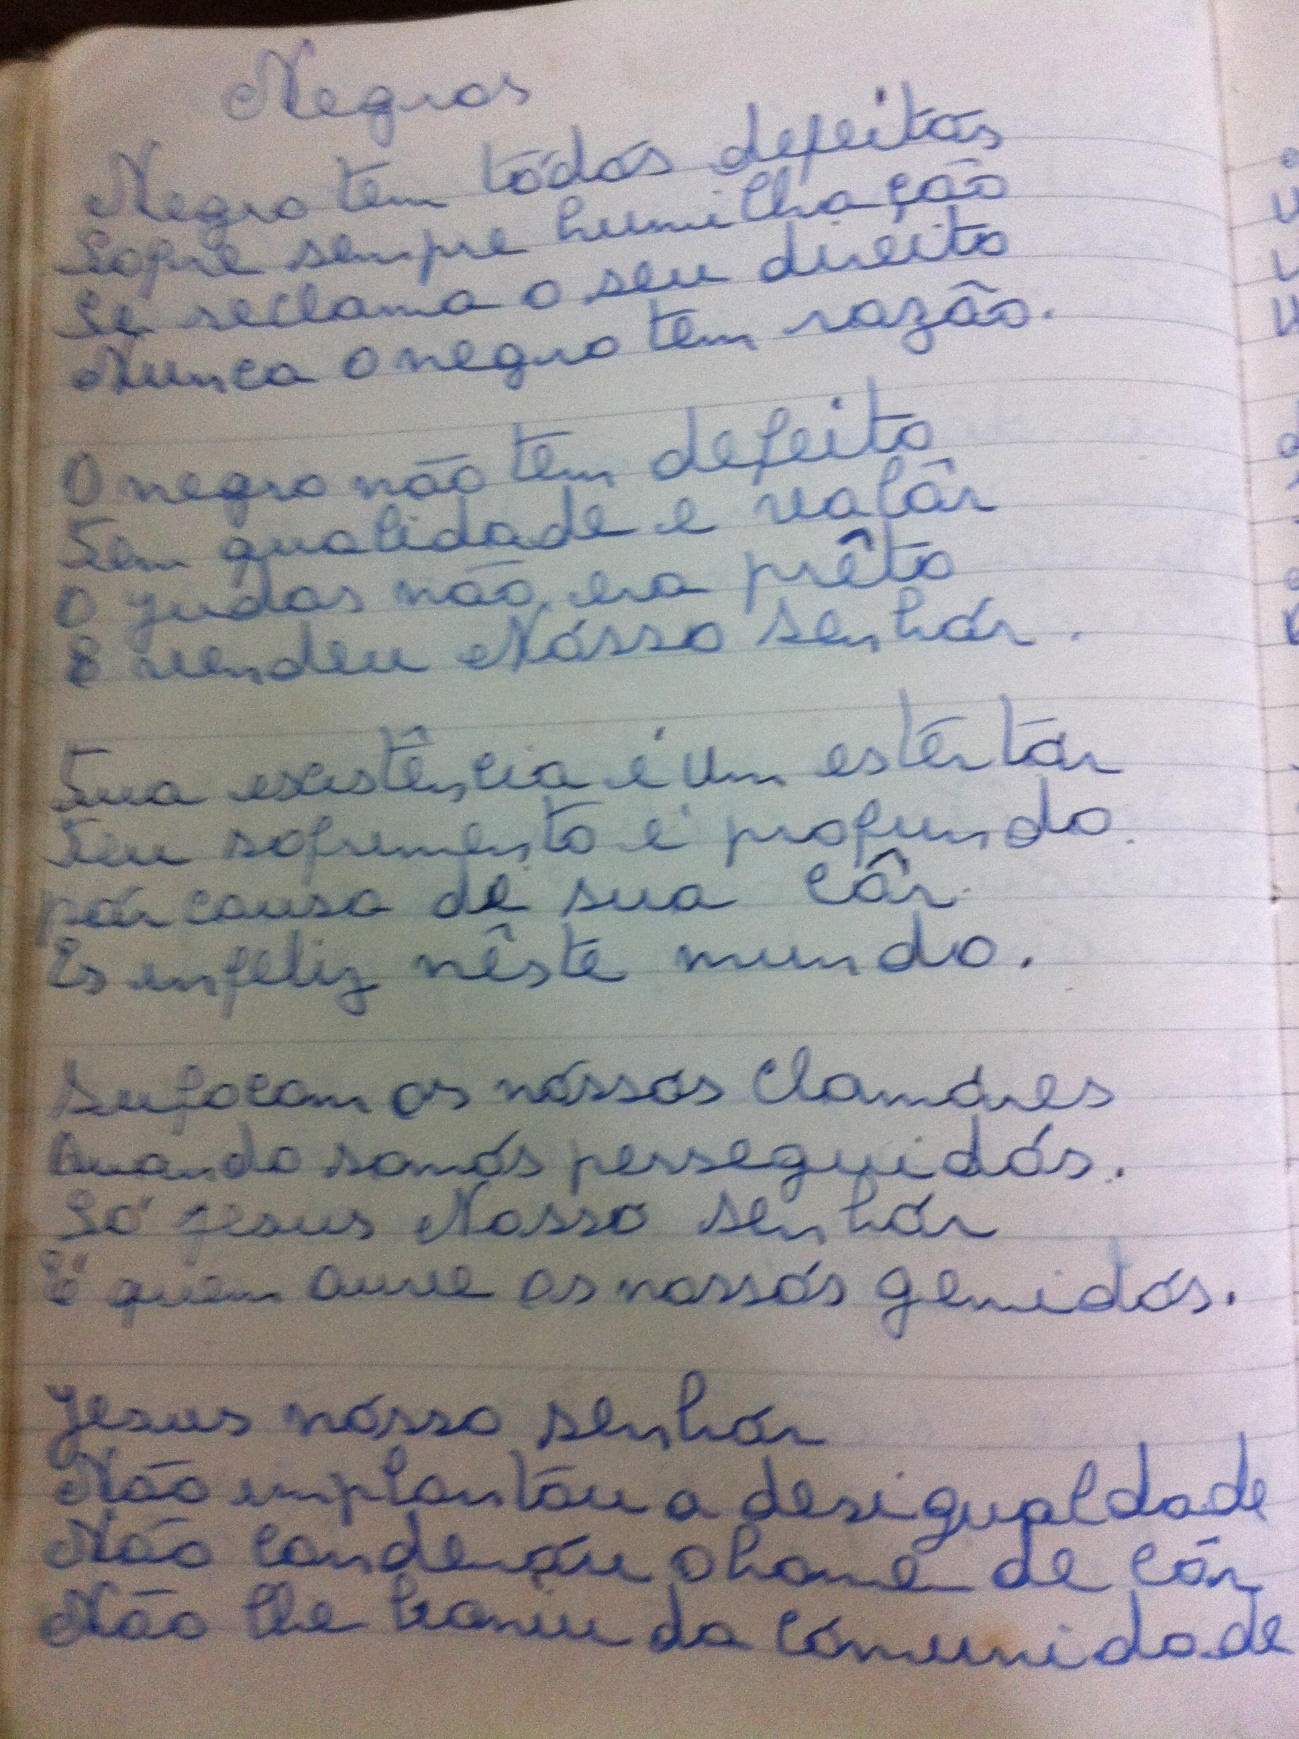 Negros
Negro tem tódós defeitós
Sofre sempre humilhação
Se reclama o seu direito
Nunca o negro tem razão.
O negro não tem defeito
Tem qualidade e valôr
O judas não era prêto
E vendeu Nósso senhór.
Tua existência é um estertór
Teu sofrimento é profundo.
pór causa de sua côr.
Es infeliz nêste mundo.
Sufocam os nóssos clamóres
Quando somós perseguidós.
Só Jesus Nosso senhór
É quem ouve os nossós gemidós.
Jesus nósso senhór
Não implantóu a desigualdade
Não condenóu o home de cór
Não lhe baniu da cómunidade